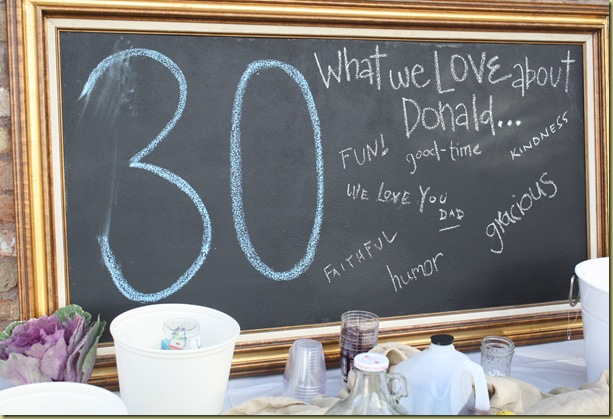 30
What we LOVE about
Donald...
FUN!
good-time
KINDNESS
WE LOVE YOU
DAD
gracious
FAITHFUL
humor